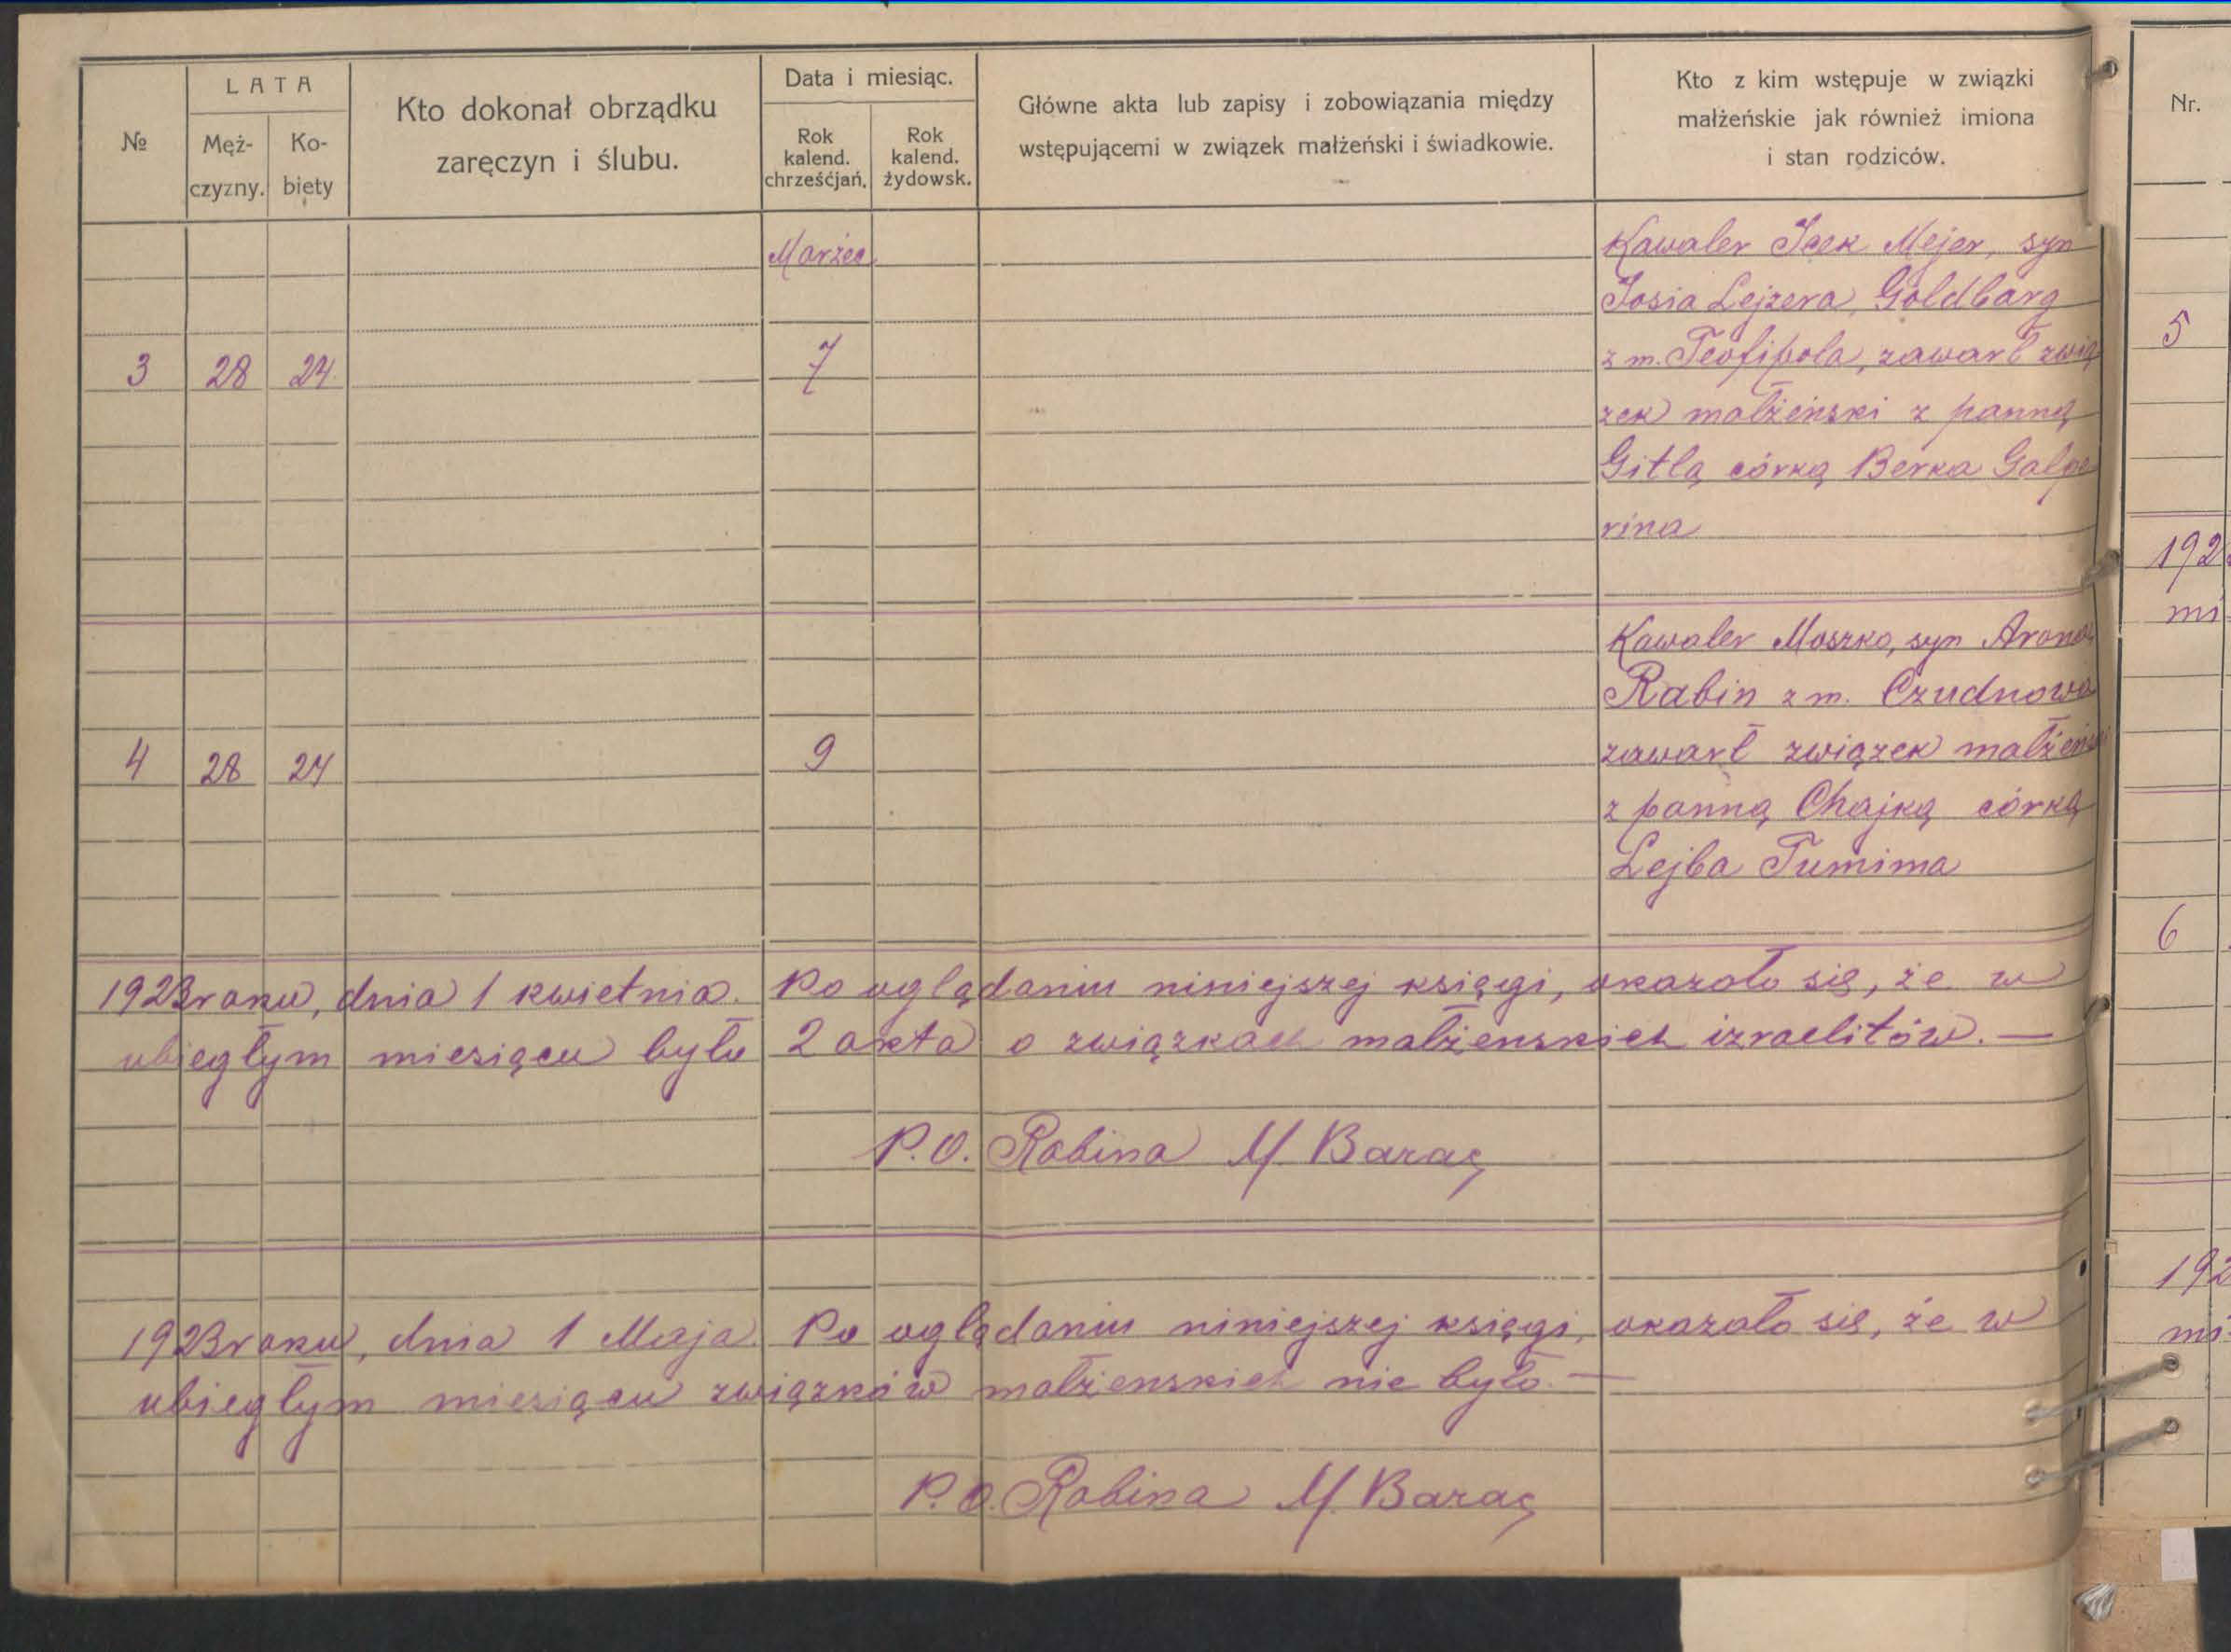 №
LATA
Męż-
czyzny.
Ko-
biety
Kto dokonał obrządku
zaręczyn i ślubu.
Data i miesiąc.
Rok
kalend.
chrześćjań.
Rok
kalend.
żydowsk.
Główne akta lub zapisy i zobowiązania między
wstępującemi w związek małżeński i świadkowie.
Kto z kim wstępuje w związki
małżeńskie jak również imiona
i stan rodziców.
Marzec
3 28 24 7
Kawaler Icek Mejer, syn
Iosia Lejzera, Goldbarg
z m. Teofipola, zawarł zwią
zek małżeński z panną
Gitlą córką Berka Galpe
rina
4 28 24 9
Kawaler Moszko, syn Arona,
Rabin z m. Czudnowa
zawarł związek małżeński
z panną Chajką córką
Lejba Tumima
1923 roku, dnia 1 kwietnia. Po oglądaniu niniejszej księgi, okazało się, że w
ubiegłym miesiącu było 2 akta o związkach małżenskich izraelitów. —
P.O. Rabina M. Barac
1923 roku, dnia 1 Maja. Po oglądaniu niniejszej księgi, okazało się, że w
ubiegłym miesiącu związków małżenskich nie było. —
P.O. Rabina M. Barac
Nr.
5
192
mi
6
192
mi